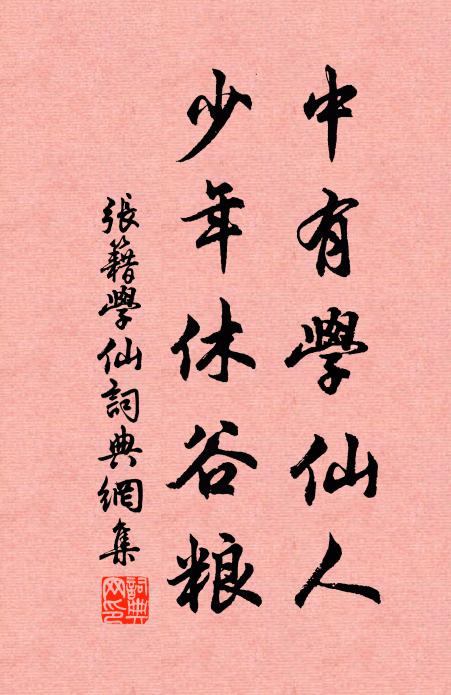 中有學仙人
少年休谷粮
張籍學仙詞典網集
詞典
网印